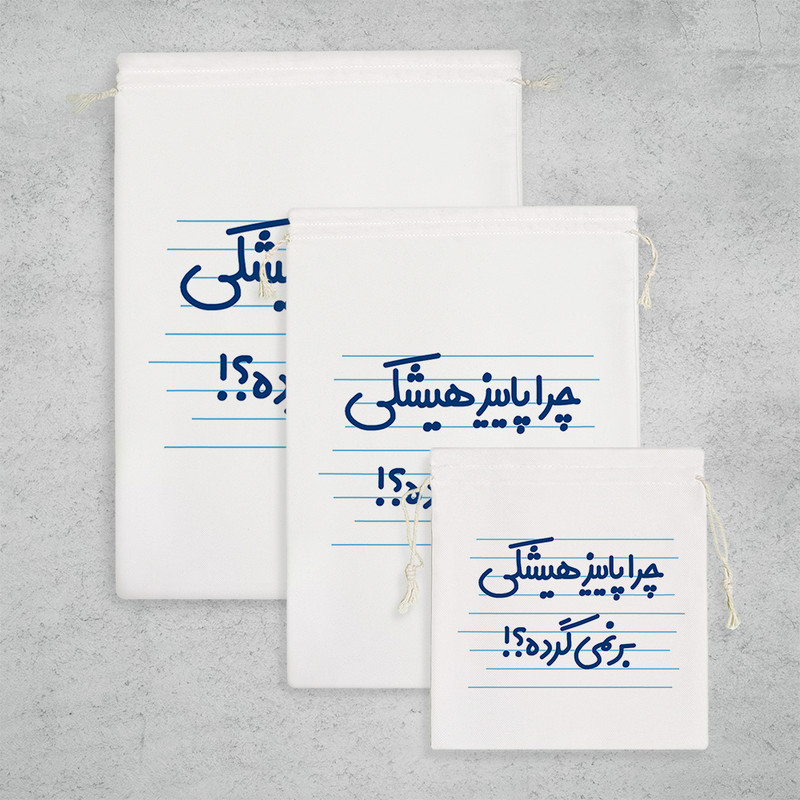 یشکی
ده؟!
چرا پاییز هیشکی
رده؟!
چرا پاییز هیشکی
برنمی گرده؟!